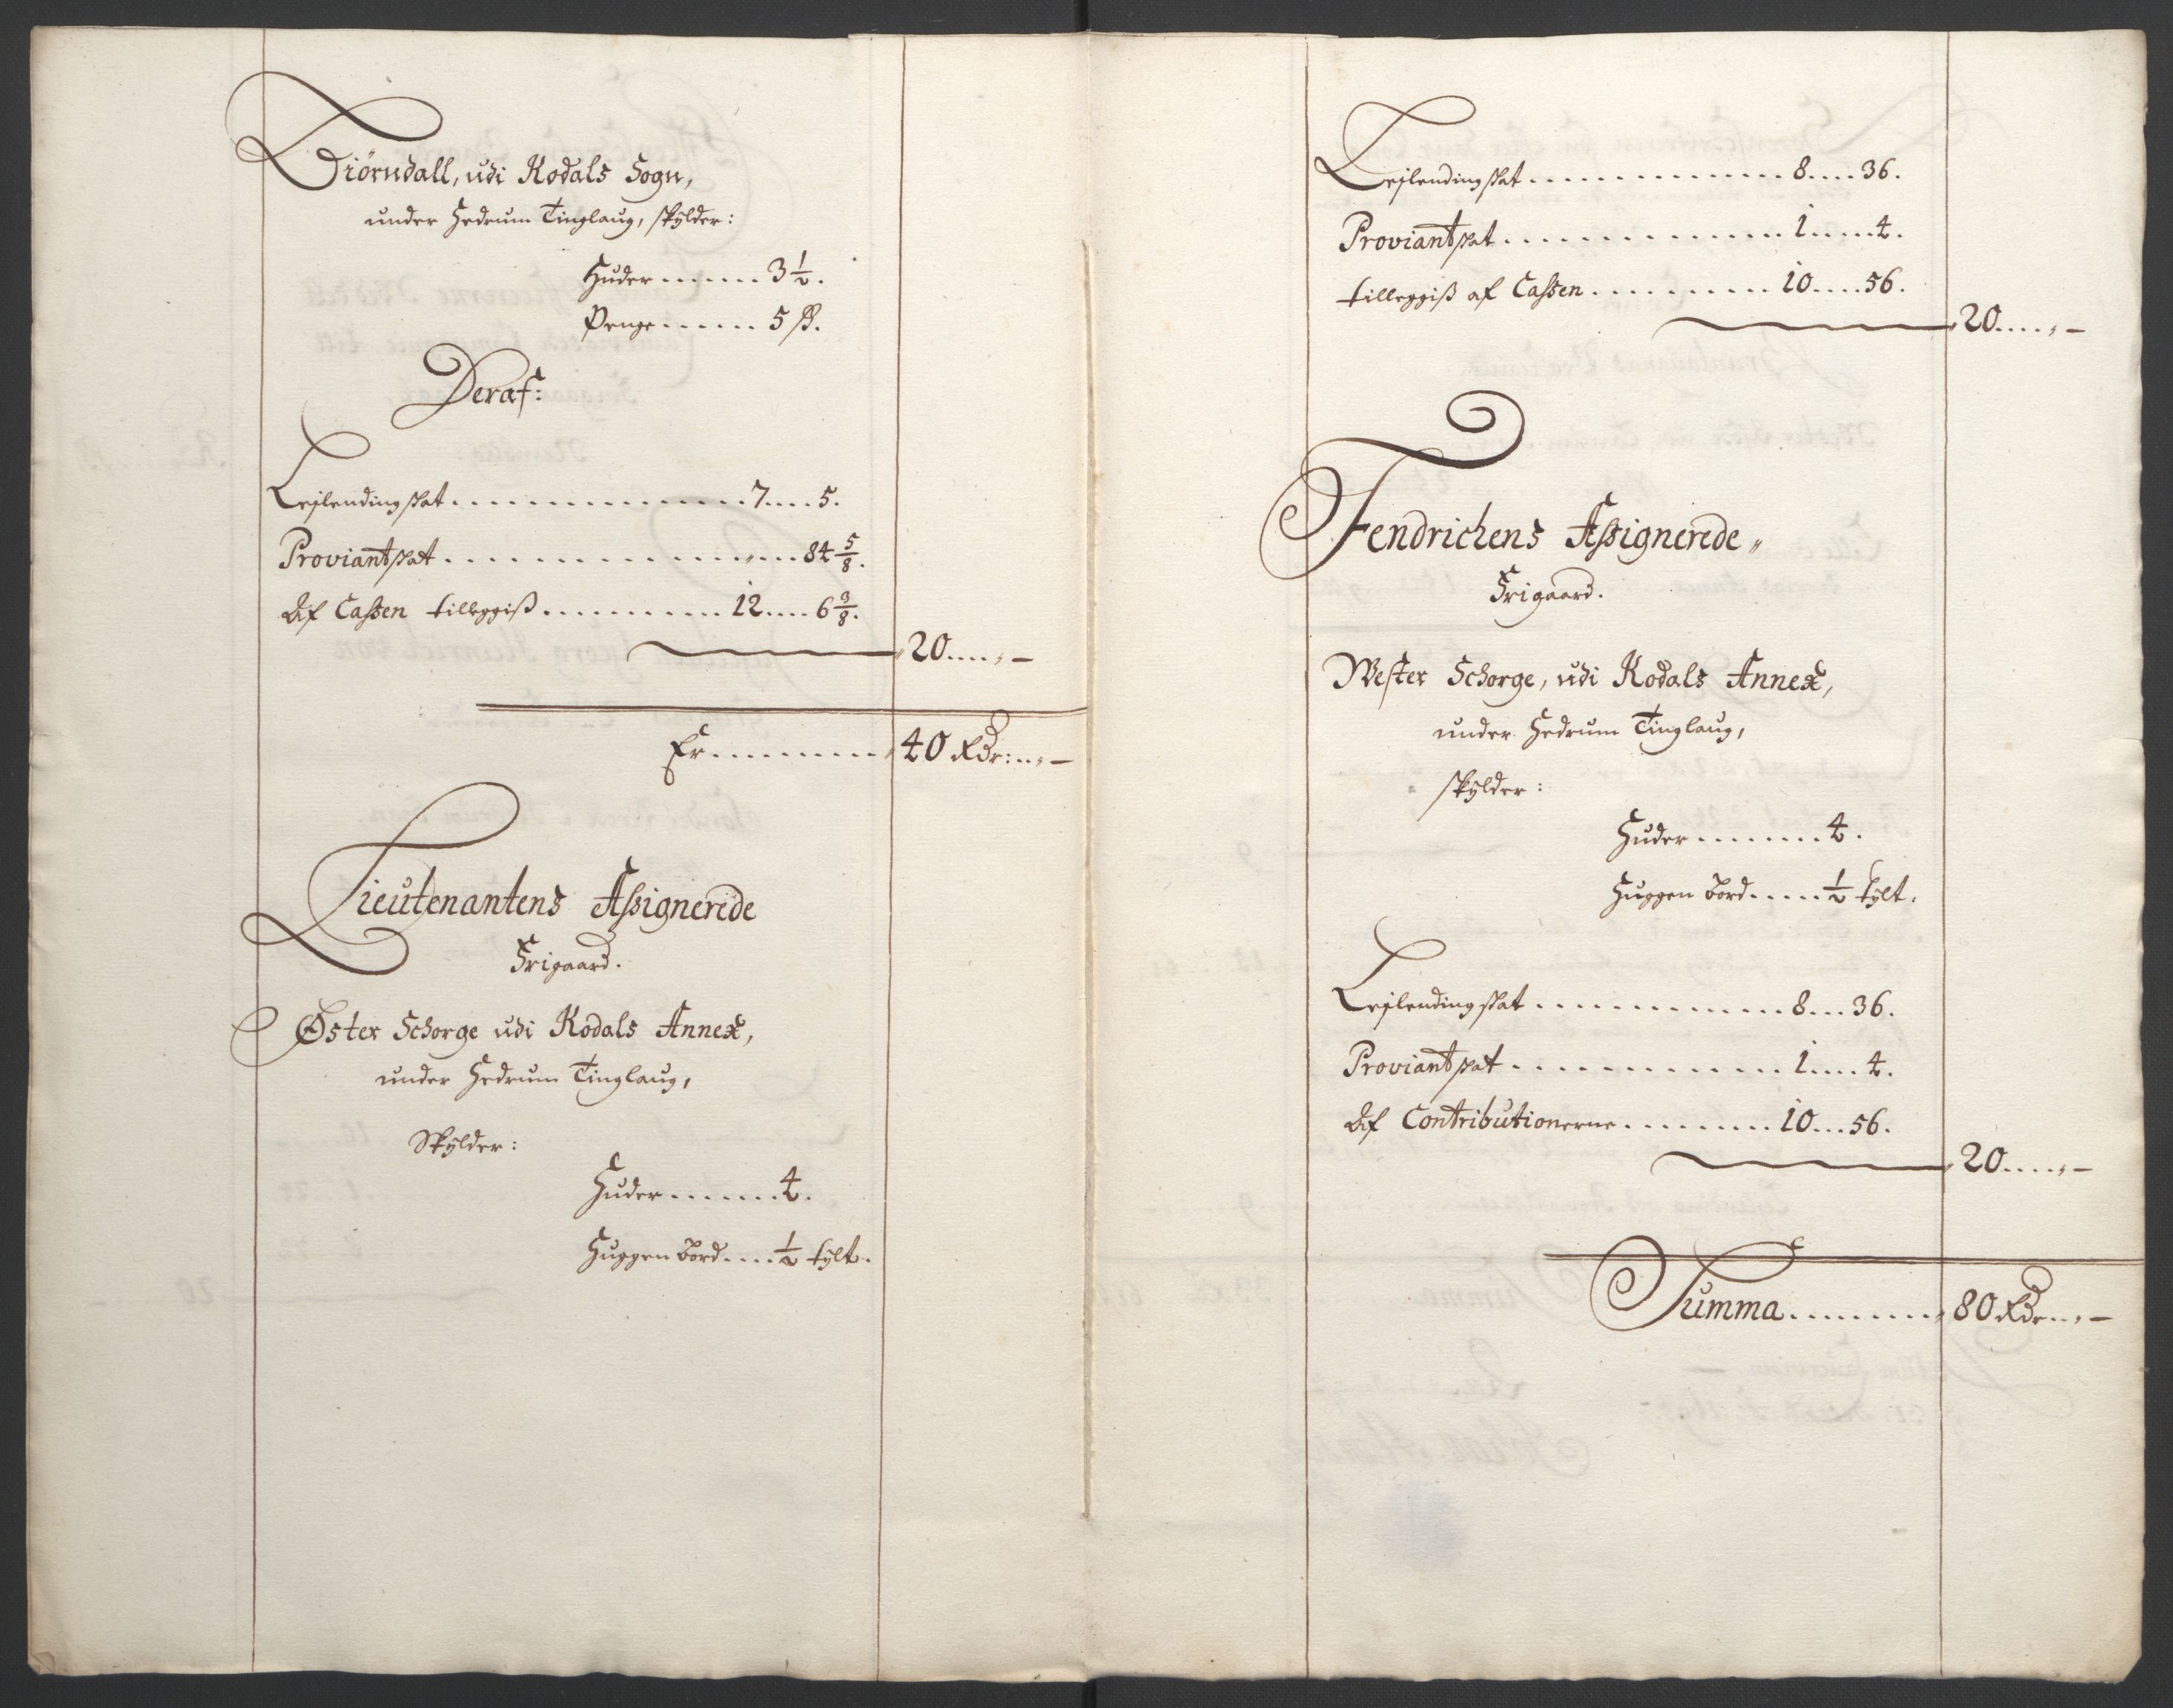 Biörndall, udi Kodals Sogn,
under Hedrum Tinglaug, skylder:
Huder . . . . . . 3 1/2 .
Penge . . . . . . 5 ß.
Deraf:
Lejlendingskat . . . . . . . . . . . . . . 7 . . . . 5.
Proviantskat . . . . . . . . . . . . . . „ . . . 84 5/8 .
Af Cassen tilleggis . . . . . . . . . . 12 . . . . 6 3/8 .
20 . . . . „ —
Er . . . . . . . . . . 40 Rdr: . . „ —
Lieutenantens Assignerede
Frigaard.
Øster Schorge udi Kodals Annex,
under Hedrum Tinglaug,
Skylder:
Huder . . . . . . . 4.
Huggen bord . . . . 1/2 tylt.
Lejlendingskat . . . . . . . . . . . . . . 8 . . . . 36.
Proviantskat . . . . . . . . . . . . . . 1 . . . . 4.
tilleggis af Cassen . . . . . . . . . . 10 . . . . 56.
20 . . . . „ —
Fendrichens Assignerede „
Frigaard.
Wester Schorge, udi Kodals Annex,
under Hedrum Tinglaug,
skylder:
Huder . . . . . . . 4.
Huggen bord . . . . . 1/2 tylt.
Lejlendingskat . . . . . . . . . . . . . 8 . . . 36.
Proviantskat . . . . . . . . . . . . . 1 . . . . 4.
Af Contributionerne . . . . . . . . 10 . . . 56.
20 . . . . „ —
Summa . . . . . . . . . 80 Rdr . . „ —